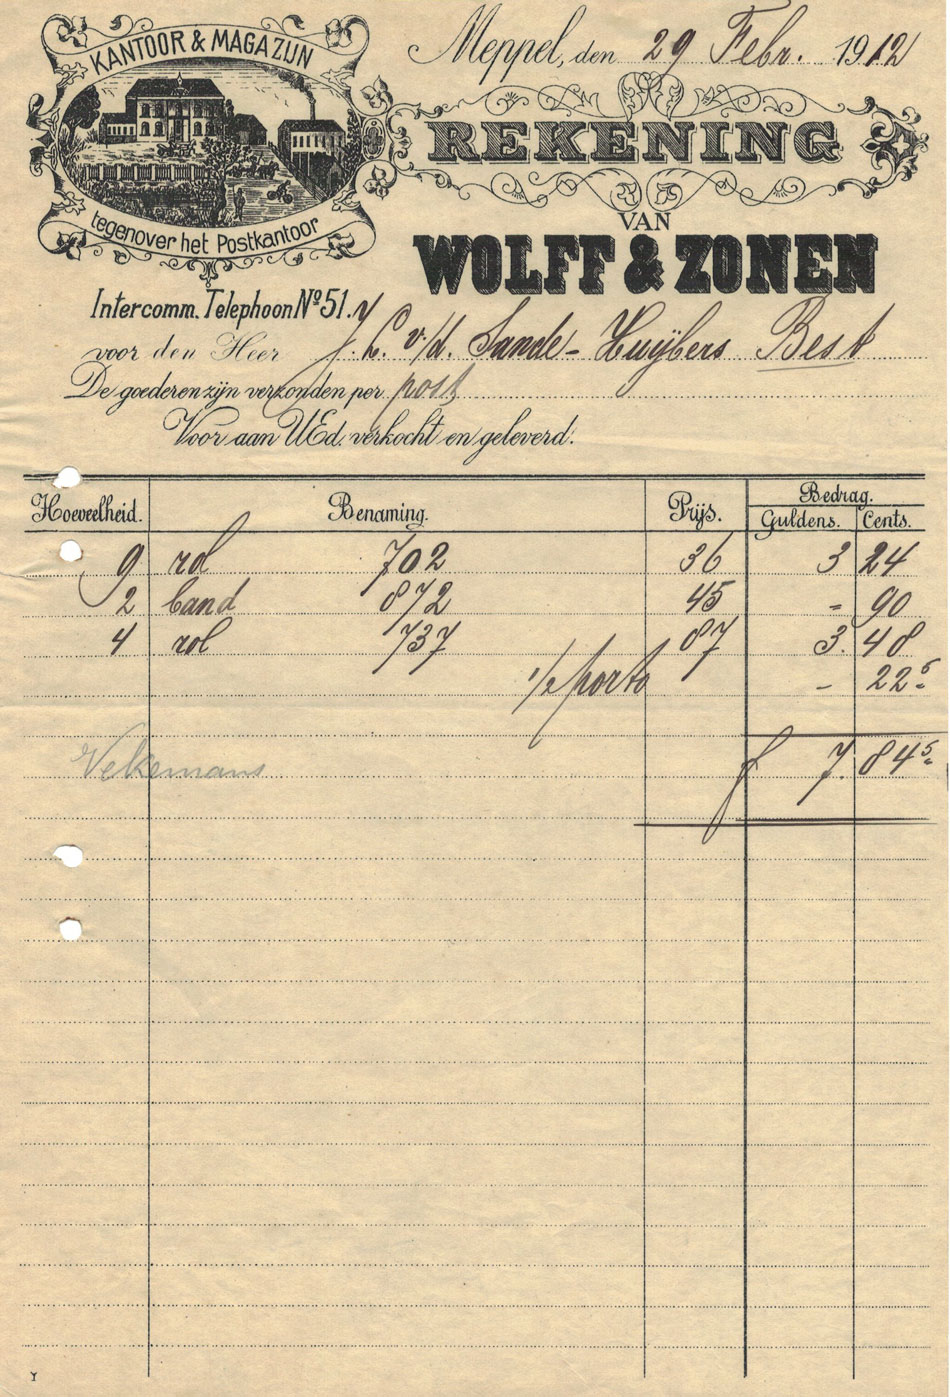 KANTOOR & MAGAZIJN
tegenover het Postkantoor
Intercomm. Telephoon No 51.
Meppel, den 29 Febr. 1912
REKENING
VAN
WOLFF & ZONEN
voor den Heer J. C. v/d. Sande-Huijbers Best
De goederen zijn verzonden per post
Voor aan UEd. verkocht en geleverd.
Hoeveelheid. Benaming. Prijs. Bedrag.
Guldens. Cents.
9 rol 702 36 3 24
2 band 872 45 - 90
4 rol 737 87 3. 48
1/2 porto - 22 5
f 7. 84 5
Vekemans
Y